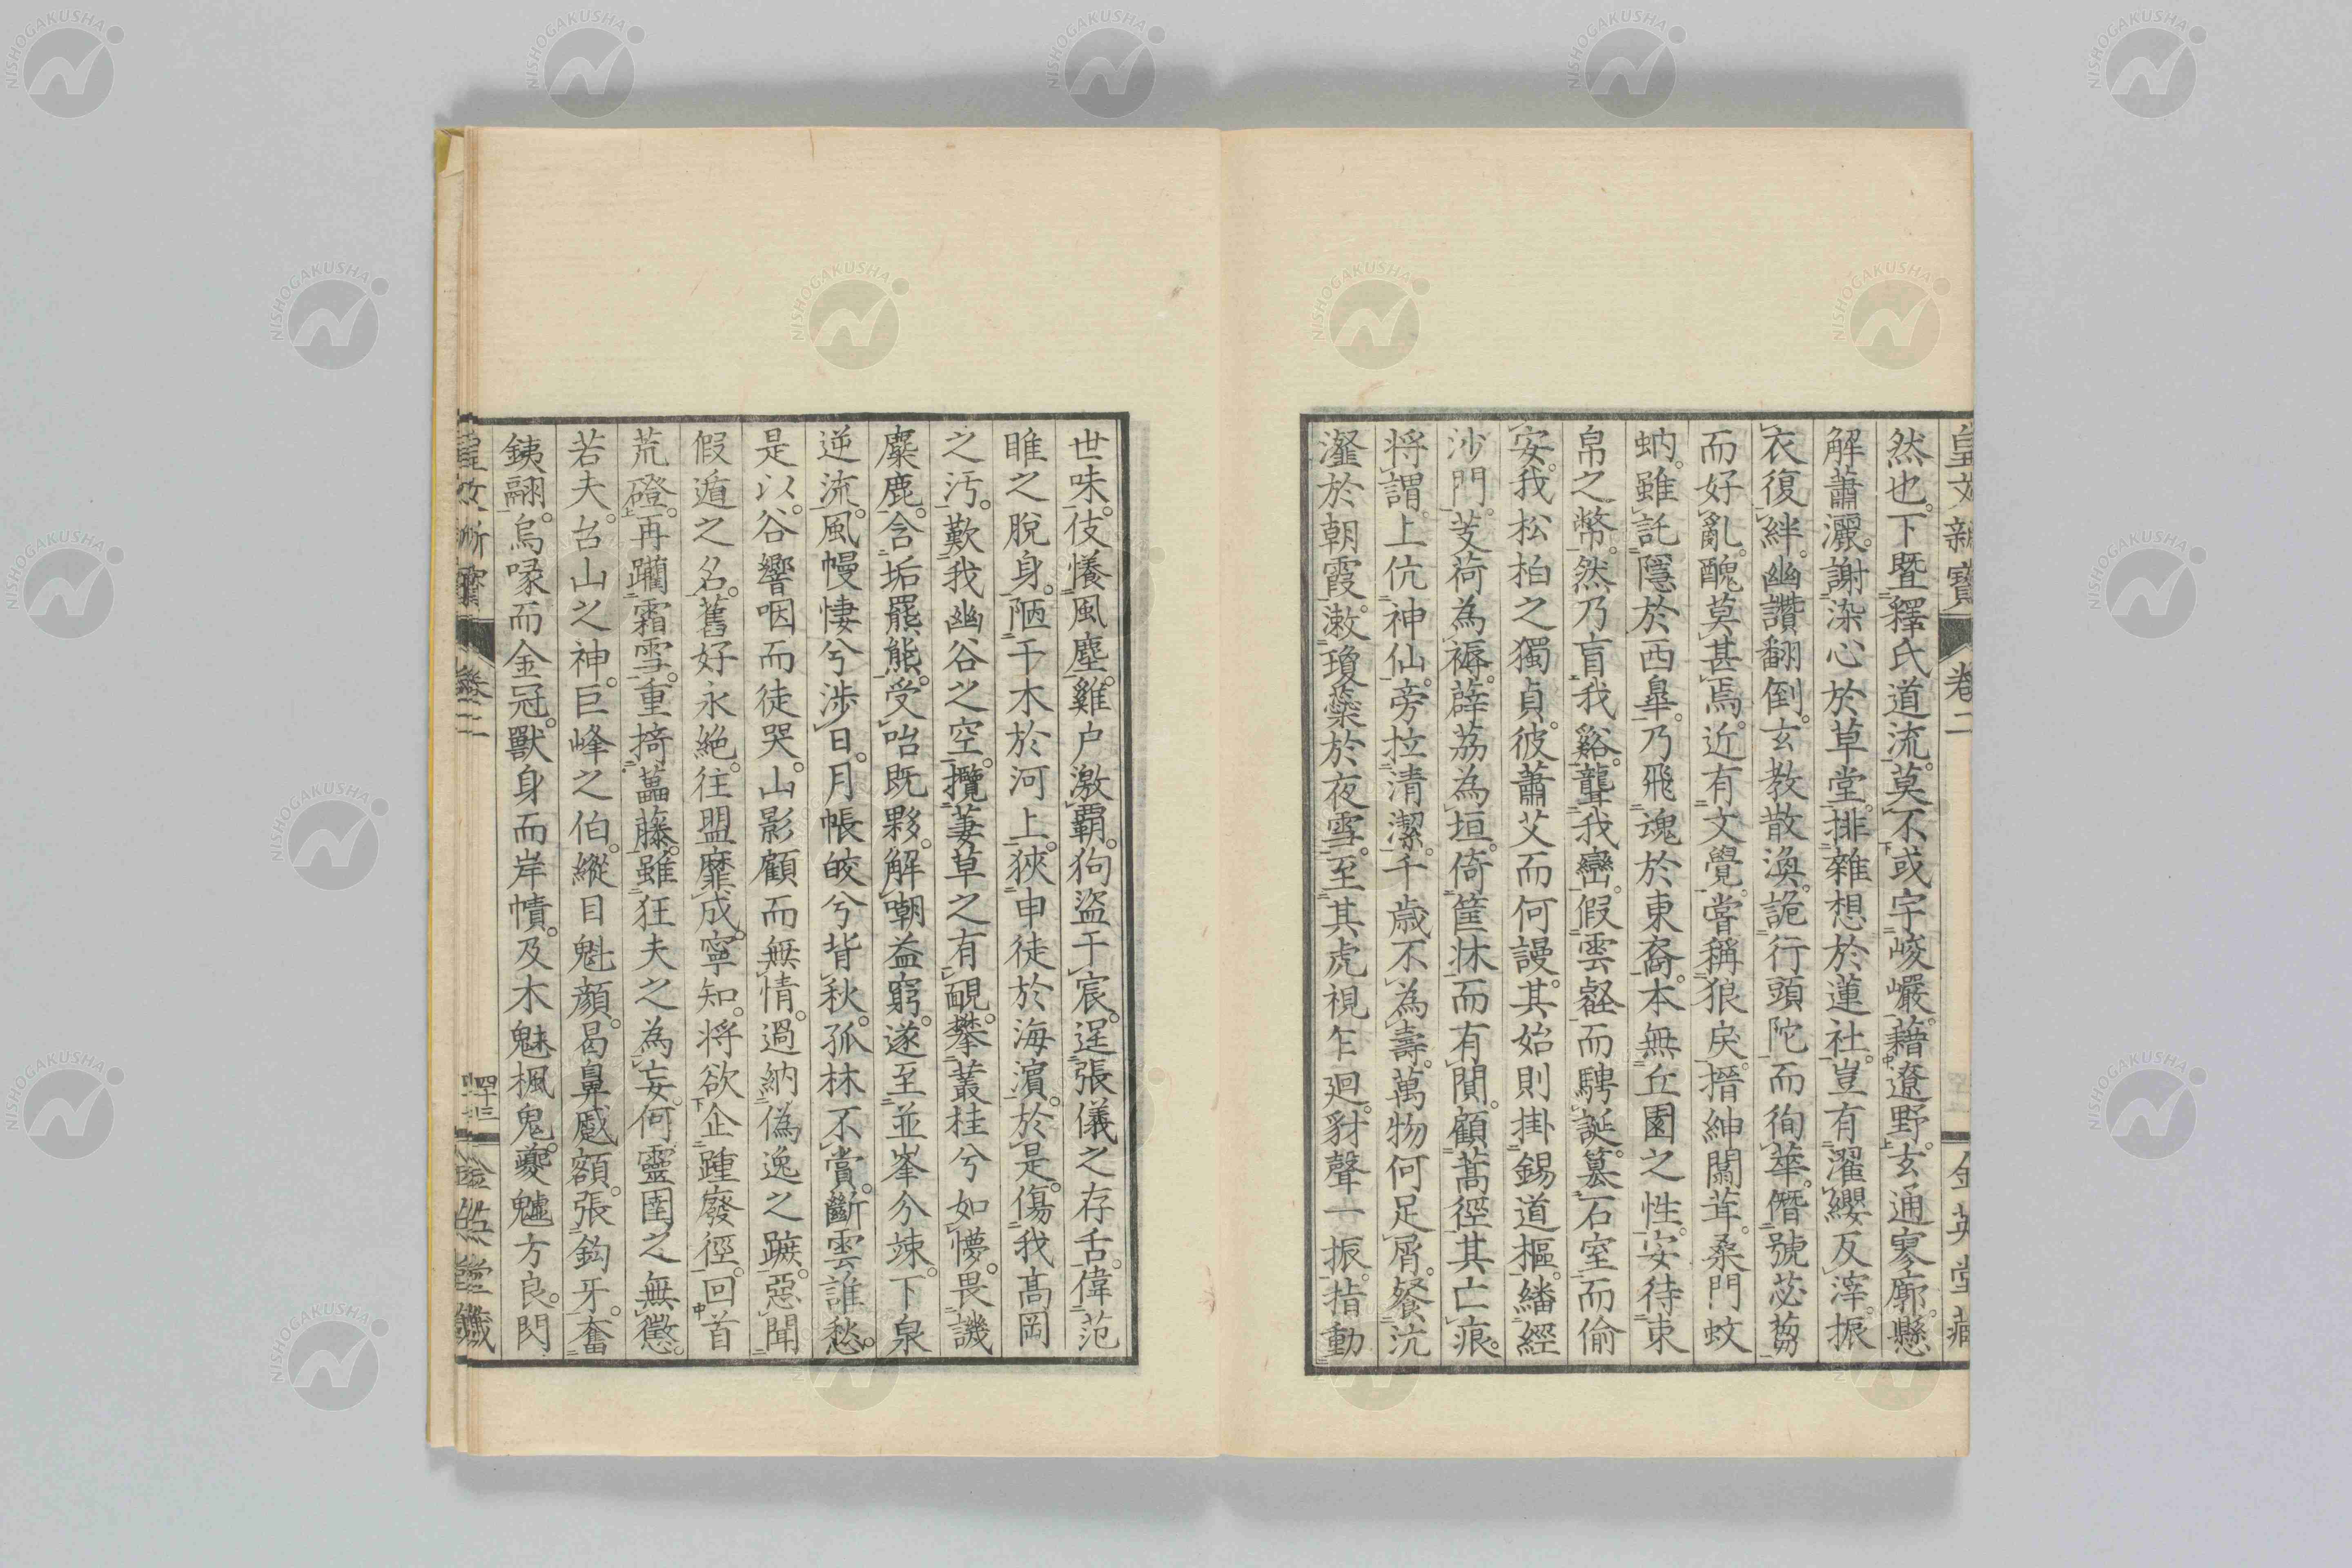 皇文新寶 卷二 金英堂藏
然也。下暨釋氏道流。莫不或宇峻巖。藉遼野。玄通寥廓。懸
解蕭灑。謝染心於草堂。排雜想於蓮社。豈有濯纓反滓。振
衣復絆。幽讚翻倒。玄教散渙。詭行頭陀而徇華。僭號苾蒭
而好亂。醜莫甚焉。近有文覺。嘗稱狼戾。搢紳闒茸。桑門蚊
蚋。雖託隱於西皐。乃飛魂於東裔。本無丘園之性。安待束
帛之幣。然乃盲我谿。聾我巒。假雲壑而騁誕。墓石室而偷
安。我松柏之獨貞。彼蕭艾而何謾。其始則掛錫道樞。繙經
沙門。芰荷為褥。薜荔為垣。倚筐牀而有閴。顧蒿徑其亡痕。
將謂上伉神仙。旁拉清潔。千歳不為壽。萬物何足屑。餐沆
瀣於朝霞。漱瓊蘂於夜雪。至其虎視乍迴。豺聲一振。指動
世味。伎懩風塵。雞户激覇。狗盜干宸。逞張儀之存舌。偉范
睢之脫身。陋干木於河上。狹申徒於海濵。於是。傷我髙岡
之汚。歎我幽谷之空。攬萋草之有靦。攀叢桂兮如懜。畏譏
麋鹿。含垢羆熊。受咍既夥。解嘲益窮。遂至並峯兮竦。下泉
逆流。風幔悽兮渉日。月帳皎兮背秋。孤林不賞。斷雲誰愁。
是以谷響咽而徒哭。山影顧而無情。過納偽逸之蹠。惡聞
假遁之名。舊好永絶。往盟靡成。寧知。將欲企踵廢徑。回首
荒磴。再躪霜雪。重掎藟藤。雖狂夫之為妄。何靈囿之無懲。
若夫。台山之神。巨峰之伯。縱目魁顔。曷鼻慼額。張鉤牙。奮
銕翮。烏喙而金冠。獸身而岸幘。及木魅楓鬼。夔魖方良。閃
卷二 四十三